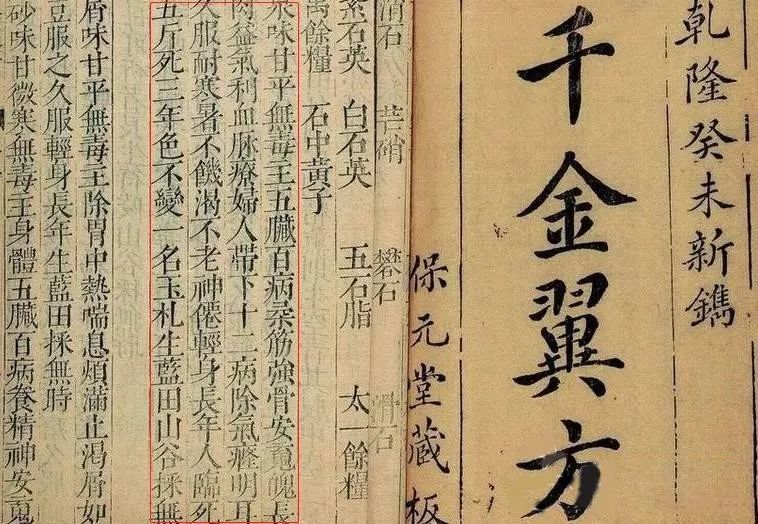 乾隆癸未新鐫
千金翼方
保元堂藏板
石 硝 礬石 滑石
石英 白石英 五石脂 太一餘糧
餘糧 石中黃子
味甘平無毒主五臟百病柔筋強骨安䰟魄長
肉益氣利血脉療婦人帶下十二病除氣癃明耳
久服耐寒暑不饑渴不老神僊輕身長年人臨死
五斤死三年色不變一名玉札生藍田山谷採無
屑味甘平無毒主除胃中熱喘息煩滿止渴屑如
豆服之久服輕身長年生藍田採無時
砂味甘微寒無毒主身體五臟百病養精神安䰟